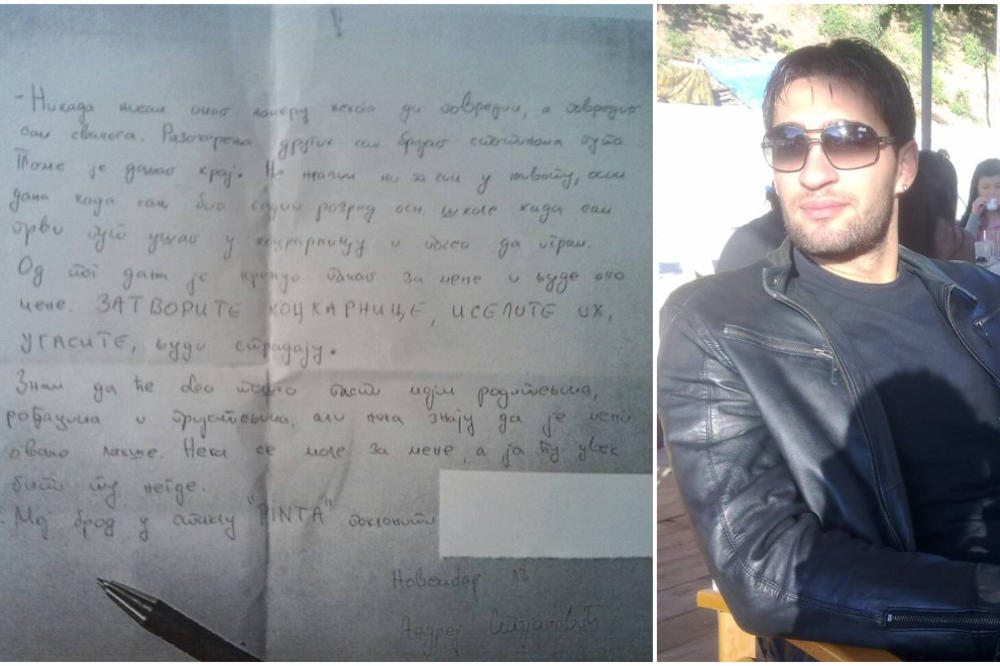 - Никада нисам имао намеру некога да повредим, а повредио
сам свакога. Разочарења других сам бројао стотинама пута.
Томе је дошао крај. Не жалим ни за чим у животу, осим
дана када сам био седми розред осн. школе када сам
први пут ушао у коцкарницу и почео да играм.
Од тог дана је кренуо пакао за мене и људе око
мене. ЗАТВОРИТЕ КОЦКАРНИЦЕ, ИСЕЛИТЕ ИХ,
УГАСИТЕ, људи страдају.
Знам да ће ово тешко пасти мојим родитељима,
рођацима и пријатељима, али нека знају да је мени
овако лакше. Нека се моле за мене, а ја ћу увек
бити ту негде.
Мој брод у стаклу "PINTA" поклонити
Новембар 13
Андреј